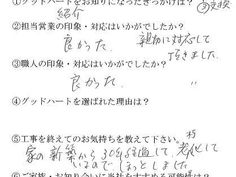 ①グッドハートをお知りになったきっかけは？
紹介
②担当営業の印象・対応はいかがでしたか？
良かった 親切に対応して
頂きました
③職人の印象・対応はいかがでしたか？
良かった 〃
④グッドハートを選ばれた理由は？
⑤工事を終えてのお気持ちを教えて下さい。
家の新築から30年経過して、老化して
いるのでほっとしました
⑥ご家族・お知り合いに当社をすすめる